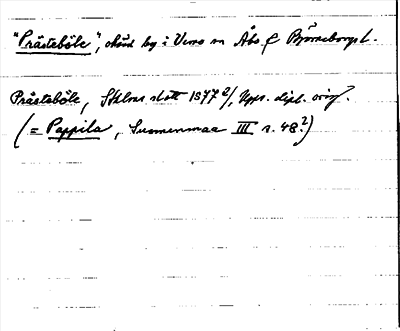 "Prästeböle", okänd by i Vemo sn Åbo o Björneborgs l.
Prästeböle, Sthlms slott 1577 2/, Upps. dipl. orig.
(= Pappila, Suomenmaa III s. 48?)